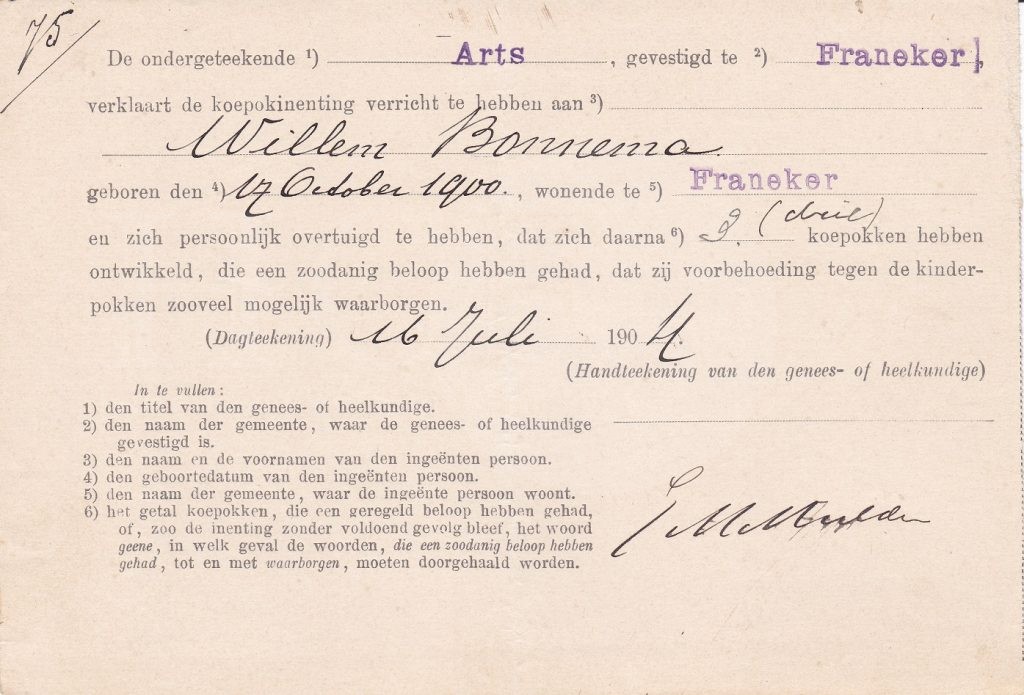 75
De ondergeteekende ¹) Arts, gevestigd te ²) Franeker,
verklaart de koepokinenting verricht te hebben aan ³)
Willem Bonnema
geboren den ⁴) 17 October 1900., wonende te ⁵) Franeker
en zich persoonlijk overtuigd te hebben, dat zich daarna ⁶) 3. (drie) koepokken hebben
ontwikkeld, die een zoodanig beloop hebben gehad, dat zij voorbehoeding tegen de kinder-
pokken zooveel mogelijk waarborgen.
(Dagteekening) 16 Juli 1904.
(Handteekening van den genees- of heelkundige)
In te vullen:
1) den titel van den genees- of heelkundige.
2) den naam der gemeente, waar de genees- of heelkundige
gevestigd is.
3) den naam en de voornamen van den ingeënten persoon.
4) den geboortedatum van den ingeënten persoon.
5) den naam der gemeente, waar de ingeënte persoon woont.
6) het getal koepokken, die een geregeld beloop hebben gehad,
of, zoo de inenting zonder voldoend gevolg bleef, het woord
geene, in welk geval de woorden, die een zoodanig beloop hebben
gehad, tot en met waarborgen, moeten doorgehaald worden.